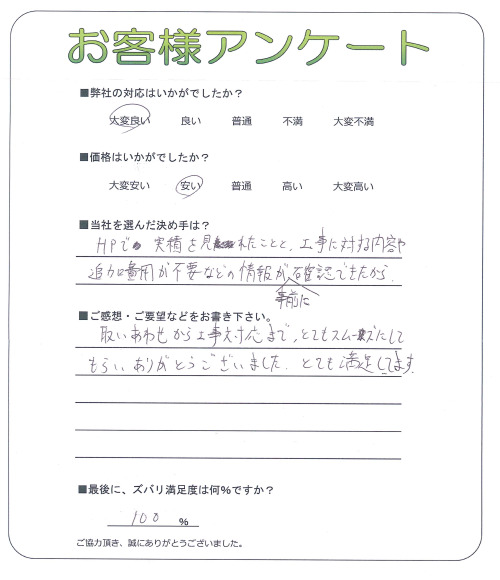 お客様アンケート
■弊社の対応はいかがでしたか？
大変良い 良い 普通 不満 大変不満
■価格はいかがでしたか？
大変安い 安い 普通 高い 大変高い
■当社を選んだ決め手は？
HPで 実績を見れたことと、工事に対する内容や
追加費用が不要などの情報が確認できたから.
事前に
■ご感想・ご要望などをお書き下さい。
取いあわせから工事対応まで、とてもスムーズにして
もらい、ありがとうございました. とても満足してます.
■最後に、ズバリ満足度は何%ですか？
100 %
ご協力頂き、誠にありがとうございました。